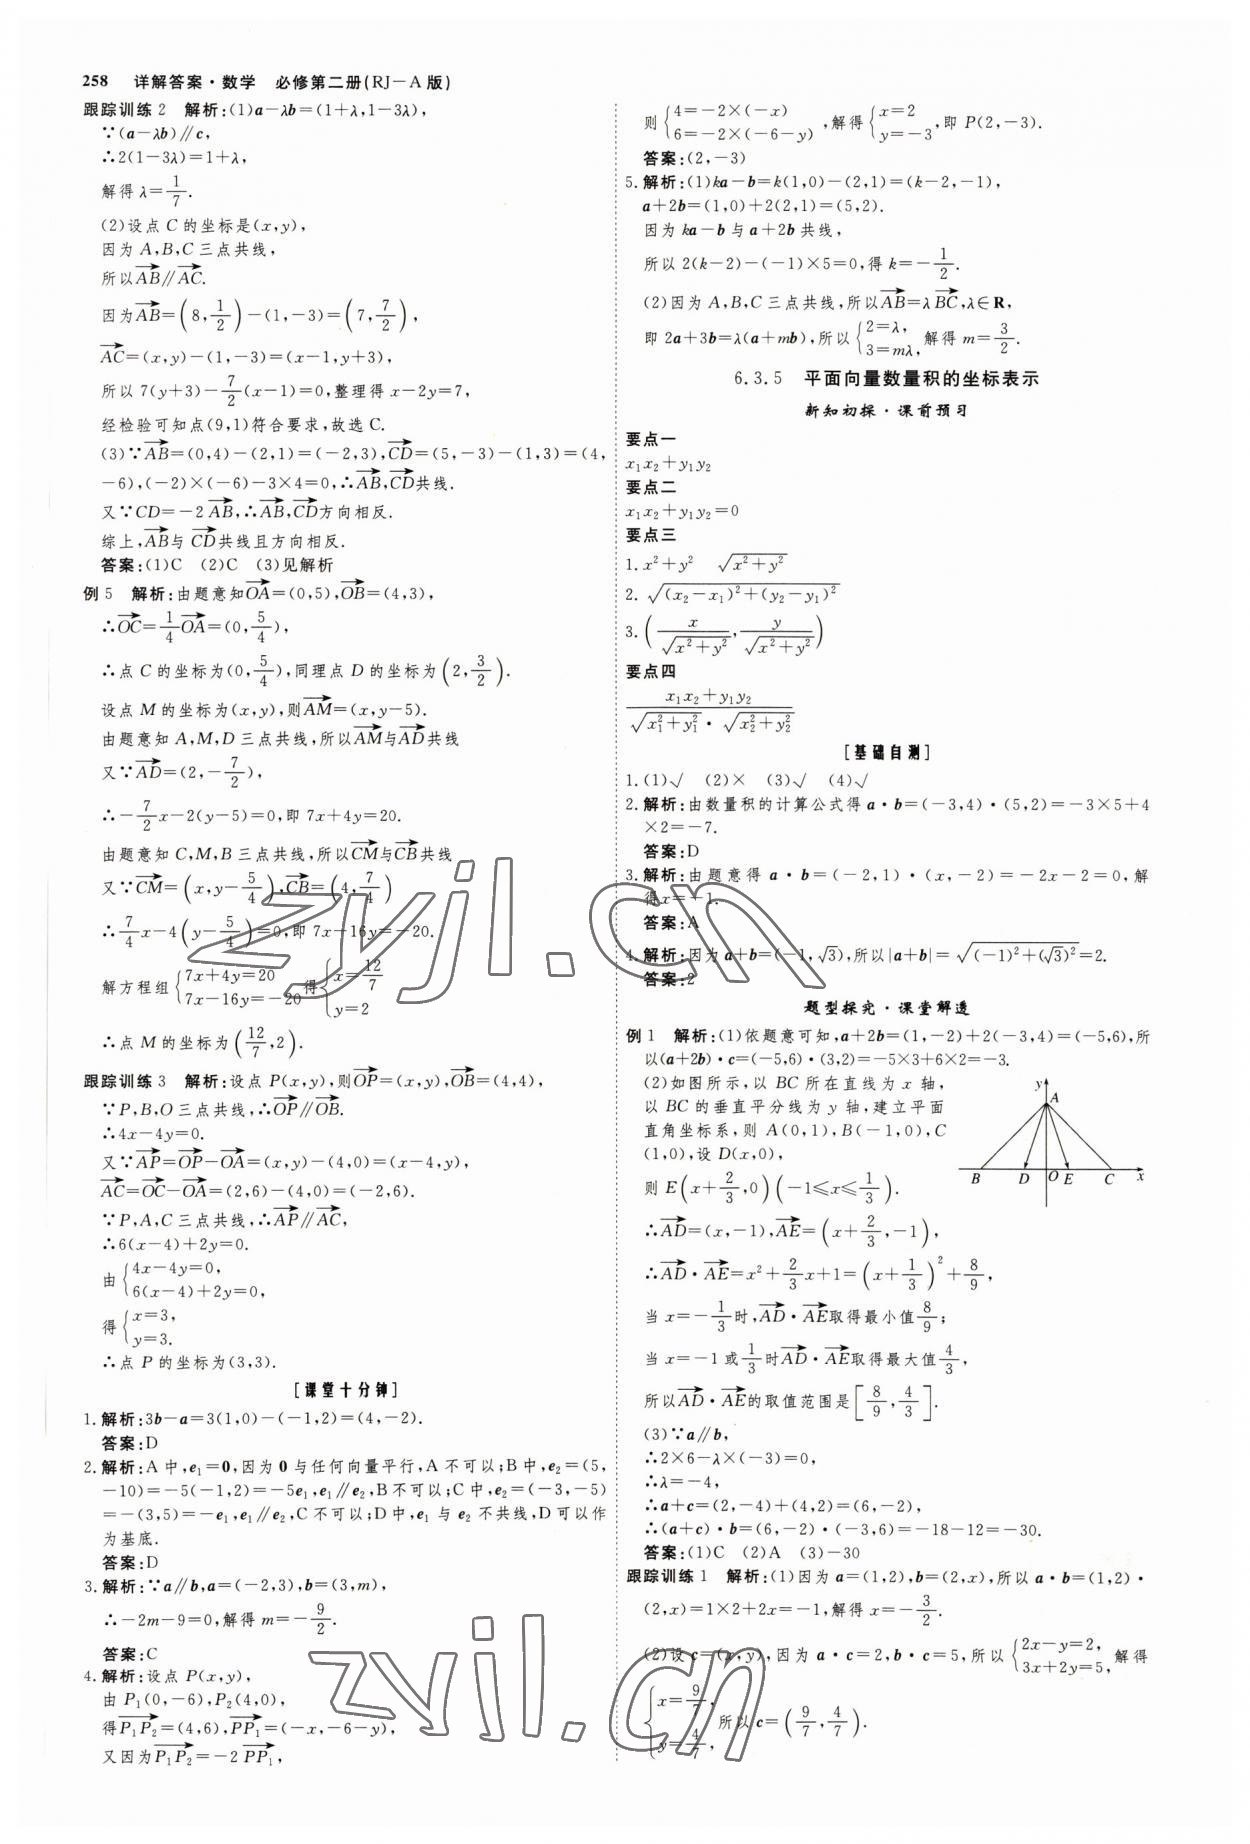 258 详解答案·数学 必修第二册(RJ—A版)
跟踪训练2 解析:(1)a-λb=(1+λ,1-3λ),
∵(a-λb)∥c,
∴2(1-3λ)=1+λ,
解得λ=1/7.
(2)设点C的坐标是(x,y),
因为A,B,C三点共线,
所以AB→∥AC→.
因为AB→=(8,1/2)-(1,-3)=(7,7/2),
AC→=(x,y)-(1,-3)=(x-1,y+3),
所以7(y+3)-7/2(x-1)=0,整理得x-2y=7,
经检验可知点(9,1)符合要求,故选C.
(3)∵AB→=(0,4)-(2,1)=(-2,3),CD→=(5,-3)-(1,3)=(4,
-6),(-2)×(-6)-3×4=0,∴AB→,CD→共线.
又∵CD=-2AB→,∴AB→,CD→方向相反.
综上,AB→与CD→共线且方向相反.
答案:(1)C (2)C (3)见解析
例5 解析:由题意知OA→=(0,5),OB→=(4,3),
∴OC→=1/4OA→=(0,5/4),
∴点C的坐标为(0,5/4),同理点D的坐标为(2,3/2).
设点M的坐标为(x,y),则AM→=(x,y-5).
由题意知A,M,D三点共线,所以AM→与AD→共线
又∵AD→=(2,-7/2),
∴-7/2x-2(y-5)=0,即7x+4y=20.
由题意知C,M,B三点共线,所以CM→与CB→共线
又∵CM→=(x,y-5/4),CB→=(4,7/4)
∴7/4x-4(y-5/4)=0,即7x-16y=-20.
解方程组{7x+4y=20 7x-16y=-20 得{x=12/7 y=2
∴点M的坐标为(12/7,2).
跟踪训练3 解析:设点P(x,y),则OP→=(x,y),OB→=(4,4),
∵P,B,O三点共线,∴OP→∥OB→.
∴4x-4y=0.
又∵AP→=OP→-OA→=(x,y)-(4,0)=(x-4,y),
AC→=OC→-OA→=(2,6)-(4,0)=(-2,6).
∵P,A,C三点共线,∴AP→∥AC→,
∴6(x-4)+2y=0.
由{4x-4y=0, 6(x-4)+2y=0,
得{x=3, y=3.
∴点P的坐标为(3,3).
[课堂十分钟]
1.解析:3b-a=3(1,0)-(-1,2)=(4,-2).
答案:D
2.解析:A中,e₁=0,因为0与任何向量平行,A不可以;B中,e₂=(5,
-10)=-5(-1,2)=-5e₁,e₁∥e₂,B不可以;C中,e₂=(-3,-5)
=-(3,5)=-e₁,e₁∥e₂,C不可以;D中,e₁与e₂不共线,D可以作
为基底.
答案:D
3.解析:∵a∥b,a=(-2,3),b=(3,m),
∴-2m-9=0,解得m=-9/2.
答案:C
4.解析:设点P(x,y),
由P₁(0,-6),P₂(4,0),
得P₁P₂→=(4,6),PP₁→=(-x,-6-y),
又因为P₁P₂→=-2PP₁→,
则{4=-2×(-x) 6=-2×(-6-y),解得{x=2 y=-3,即P(2,-3).
答案:(2,-3)
5.解析:(1)ka-b=k(1,0)-(2,1)=(k-2,-1),
a+2b=(1,0)+2(2,1)=(5,2).
因为ka-b与a+2b共线,
所以2(k-2)-(-1)×5=0,得k=-1/2.
(2)因为A,B,C三点共线,所以AB→=λBC→,λ∈R,
即2a+3b=λ(a+mb),所以{2=λ, 3=mλ, 解得m=3/2.
6.3.5 平面向量数量积的坐标表示
新知初探·课前预习
要点一
x₁x₂+y₁y₂
要点二
x₁x₂+y₁y₂=0
要点三
1.x²+y² √(x²+y²)
2.√((x₂-x₁)²+(y₂-y₁)²)
3.(x/√(x²+y²),y/√(x²+y²))
要点四
(x₁x₂+y₁y₂)/(√(x₁²+y₁²)·√(x₂²+y₂²))
[基础自测]
1.(1)√ (2)× (3)√ (4)√
2.解析:由数量积的计算公式得a·b=(-3,4)·(5,2)=-3×5+4
×2=-7.
答案:D
3.解析:由题意得a·b=(-2,1)·(x,-2)=-2x-2=0,解
得x=-1.
答案:A
4.解析:因为a+b=(-1,√3),所以|a+b|=√((-1)²+(√3)²)=2.
答案:2
题型探究·课堂解透
例1 解析:(1)依题意可知,a+2b=(1,-2)+2(-3,4)=(-5,6),所
以(a+2b)·c=(-5,6)·(3,2)=-5×3+6×2=-3.
(2)如图所示,以BC所在直线为x轴,
以BC的垂直平分线为y轴,建立平面
直角坐标系,则A(0,1),B(-1,0),C
(1,0),设D(x,0),
则E(x+2/3,0)(-1≤x≤1/3).
y A B D O E C x
∴AD→=(x,-1),AE→=(x+2/3,-1),
∴AD→·AE→=x²+2/3x+1=(x+1/3)²+8/9,
当x=-1/3时,AD→·AE→取得最小值8/9;
当x=-1或1/3时AD→·AE→取得最大值4/3,
所以AD→·AE→的取值范围是[8/9,4/3].
(3)∵a∥b,
∴2×6-λ×(-3)=0,
∴λ=-4,
∴a+c=(2,-4)+(4,2)=(6,-2),
∴(a+c)·b=(6,-2)·(-3,6)=-18-12=-30.
答案:(1)C (2)A (3)-30
跟踪训练1 解析:(1)因为a=(1,2),b=(2,x),所以a·b=(1,2)·
(2,x)=1×2+2x=-1,解得x=-3/2.
(2)设c=(x,y),因为a·c=2,b·c=5,所以{2x-y=2, 3x+2y=5, 解得
{x=9/7, y=4/7, 所以c=(9/7,4/7).
zyjl.cn
zyjl.cn